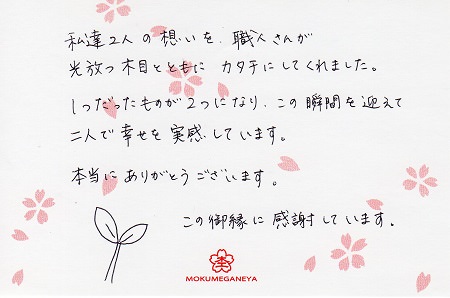 私達2人の想いを、職人さんが
光放つ木目とともに カタチにしてくれました。
1つだったものが2つになり、この瞬間を迎えて
二人で幸せを実感しています。
本当にありがとうございます。
この御縁に感謝しています。
MOKUMEGANEYA